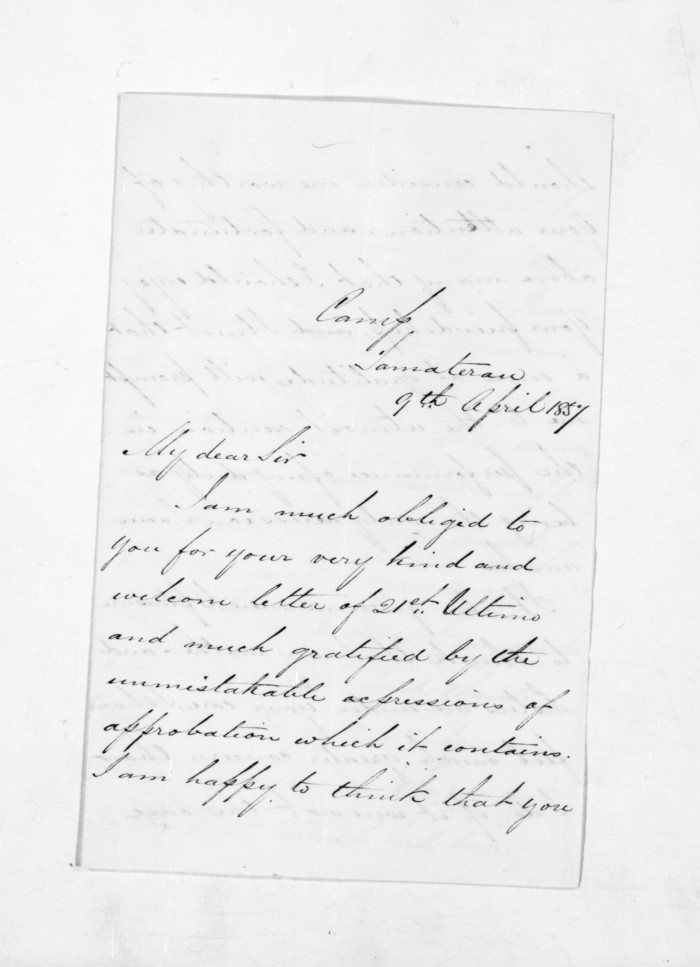 Camp
Tamaterau
9th April 1857
My dear Sir
I am much obligid to
you for your very kind and
welcom letter of 21st. Ultimo
and much gratified by the
unmistakable expressions of
approbation which it contains.
I am happy to think that you